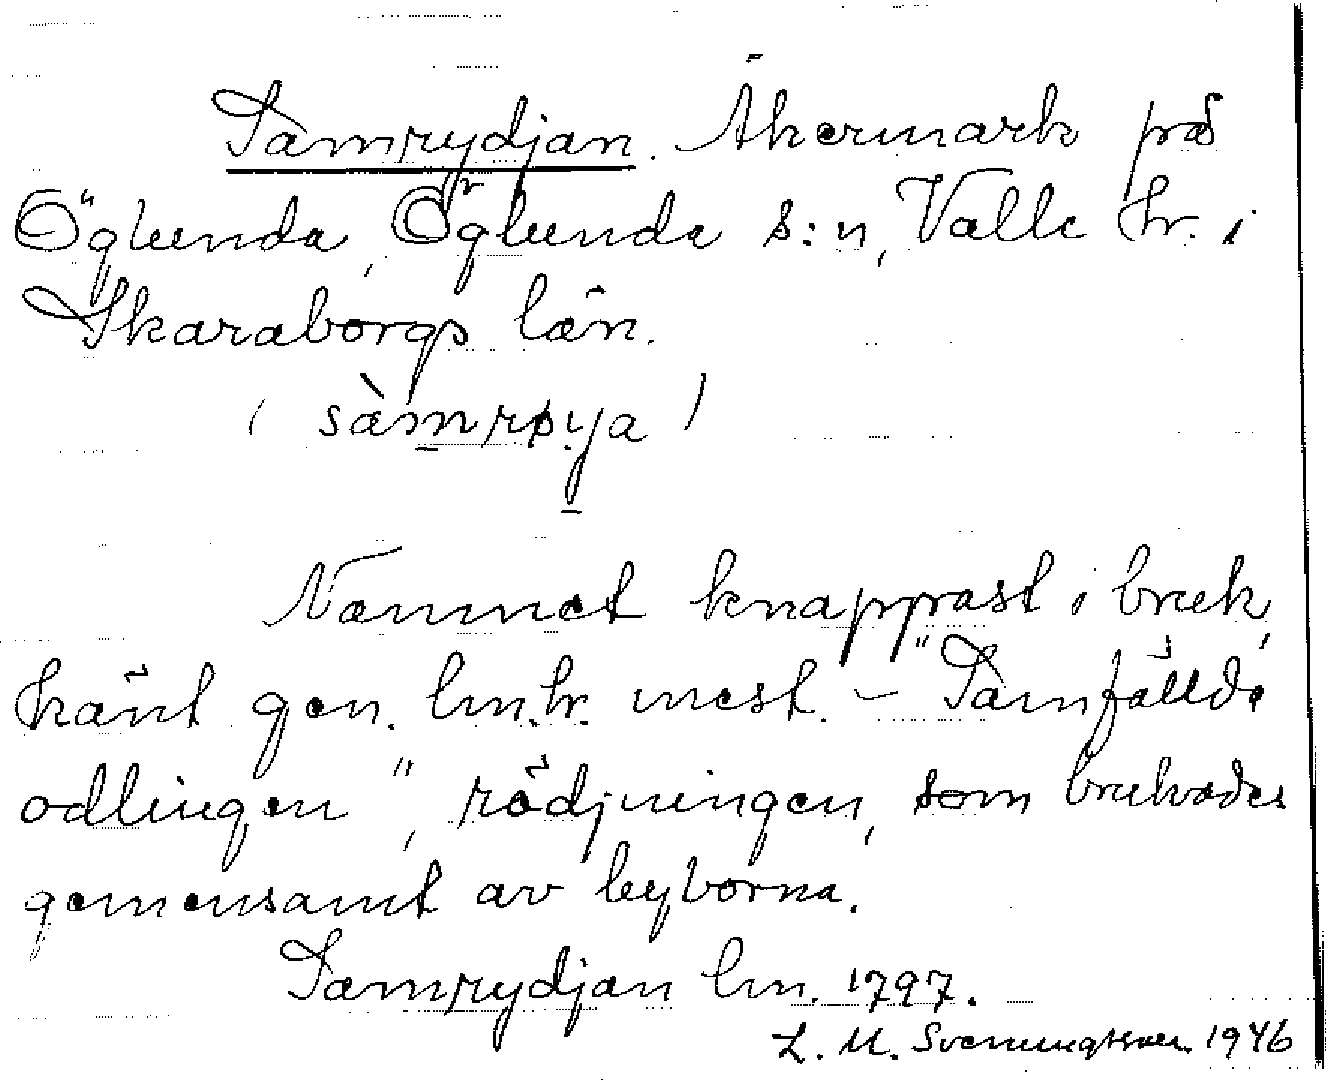 Samrydjan. Åkermark på
Öglunda, Öglunda s:n, Valle hr. i
Skaraborgs län.
( sàmrøya )
Namnet knappast i bruk,
känt gen. lm.hr. mest. – "Samfällda
odlingen", rödjningen, som brukades
gemensamt av byborna.
Samrydjan lm. 1797.
L. M. Svenungsson 1946